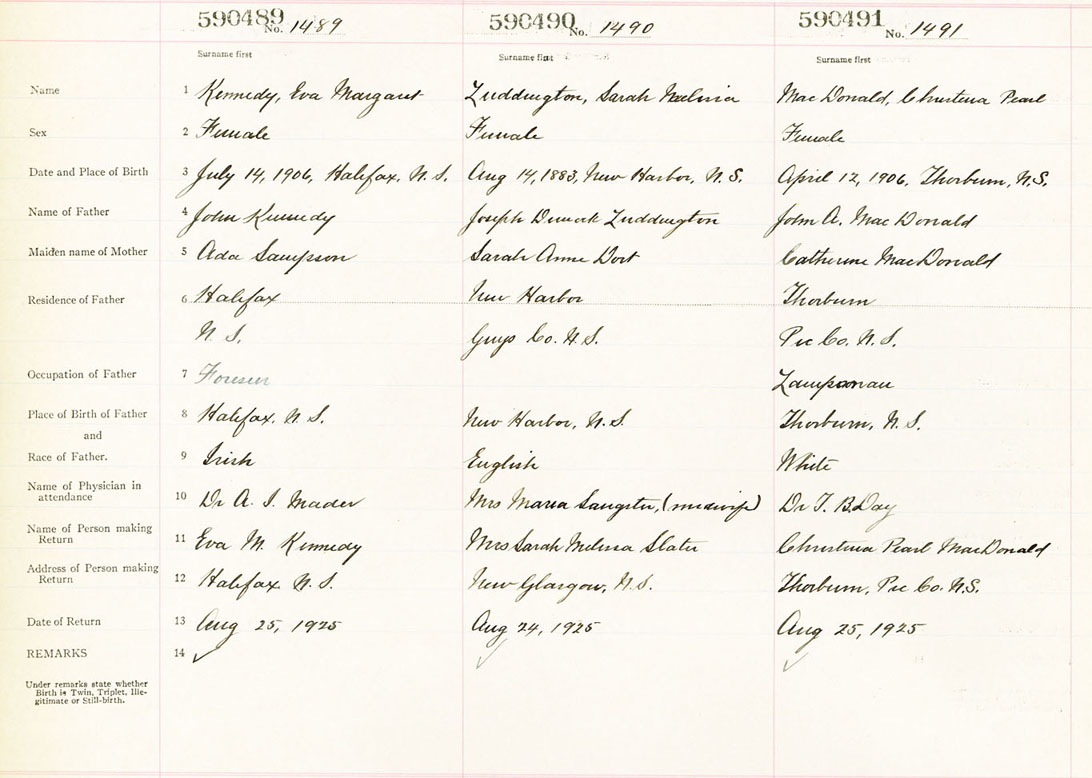 590489 No. 1489 590490 No. 1490 590491 No. 1491
Surname first Surname first Surname first
Name 1 Kennedy, Eva Margaret Luddington, Sarah Melissa Mac Donald, Christena Pearl
Sex 2 Female Female Female
Date and Place of Birth 3 July 14, 1906, Halifax, N. S. Aug 14, 1883, New Harbor, N. S. April 12, 1906, Thorburn, N.S.
Name of Father 4 John Kennedy Joseph Luddington John A. Mac Donald
Maiden name of Mother 5 Ada Sampson Sarah Anne Dort Catherine MacDonald
Residence of Father 6 Halifax New Harbor Thorburn
N. S. Guys Co. N. S. Pic Co. N. S.
Occupation of Father 7
Place of Birth of Father 8 Halifax, N. S. New Harbor, N. S. Thorburn, N. S.
and
Race of Father. 9 Irish English White
Name of Physician in
attendance 10 Dr A. I. Mader Mrs Maria Sangster, (midwife) Dr T. B. Day
Name of Person making
Return 11 Eva M. Kennedy Mrs Sarah Melissa Slater Christena Pearl MacDonald
Address of Person making
Return 12 Halifax N. S. New Glasgow, N. S. Thorburn, Pic Co. N.S.
Date of Return 13 Aug 25, 1925 Aug 24, 1925 Aug 25, 1925
REMARKS 14 ✓ ✓ ✓
Under remarks state whether
Birth is Twin, Triplet, Ille-
gitimate or Still-birth.